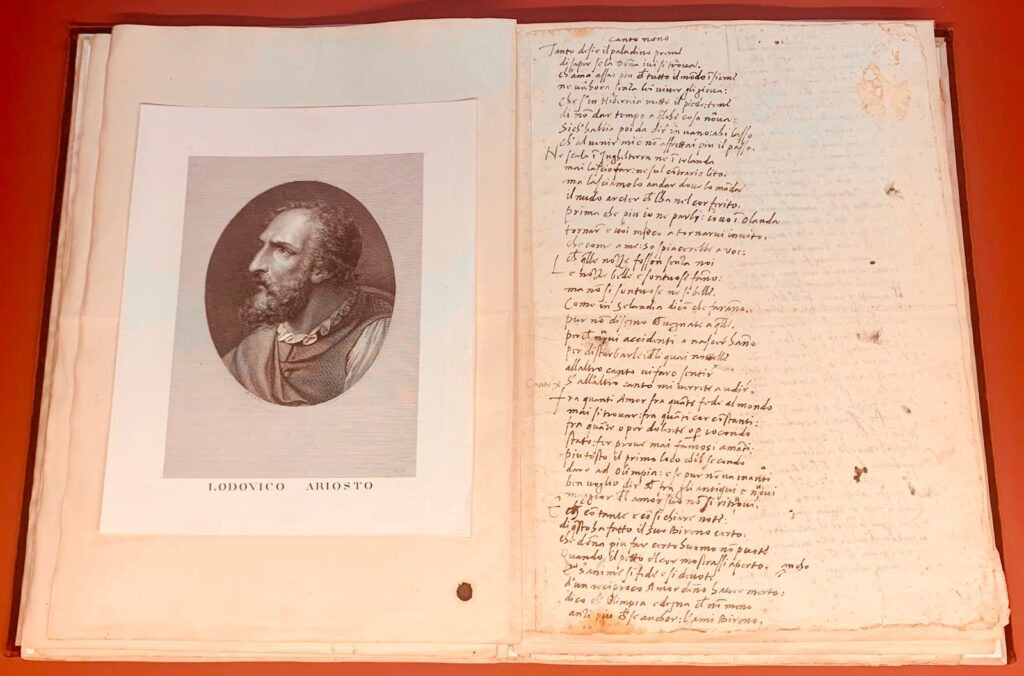 LODOVICO ARIOSTO
Canto nono
Tanto desir il paladino preme
di saper se la Dōna ivi si trova.
ch'ama assai piu ch tutto il mōdo īsieme
ne un hora senza lei viver gli giova:
che s'in Hibernia mette il piede: teme
di nō dar tempo a qlche cosa nōva:
Sich' habbia poi da dir in vano: ahi lasso
ch'al venir mio nō affrettai piu il passo.
Ne scala ī Inghilterra ne ī Irlanda
mai lascio far: ne sul contrario lito.
ma lasciāmolo andar dove lo māda
il nudo arcier ch l'ha nel cor ferito.
prima che piu io ne parli: io vo ī Olanda
tornar: e voi meco a tornarvi invito.
che come a me: so spiacerebbe a voi:
ch qlle nozze fosson senza noi
Le nozze belle e sontuose fāno:
ma nō si sontuose ne si belle.
Come in Selandia dicō che farāno.
pur nō disegno ch vegnate a qlle.
perch novi accidenti a nascer hāno
per disturbarle: d li quai novelle
all'altro canto vi faro sentir
S'all'altro canto mi verrete a udir.
Canto X
Fra quanti Amor fra quāte fede al mondo
mai si trovar: fra quāti cor cōstanti:
fra quāte o per dolente o p iocondo
stato: fer prove mai famosi amāti.
piu tosto il primo loco ch'il secondo
daro ad Olimpia: e se pur nō va inanti
ben voglio dir ch tra gli antiqui e novi
maggior dl amor suo nō si ritrovi.
E ch cō tante e cō si chiare note:
di qsto ha fatto il suo Bireno certo:
che dōna piu far certo huomo nō puote
Quando il petto e'l cor mostrassi aperto. ancho
E s'anime si fide e si devote
d'un reciproco Amor deno haver merto:
dico ch Olimpia e degna ch nō meno
anzi piu ch se anchor: l'ami Bireno.